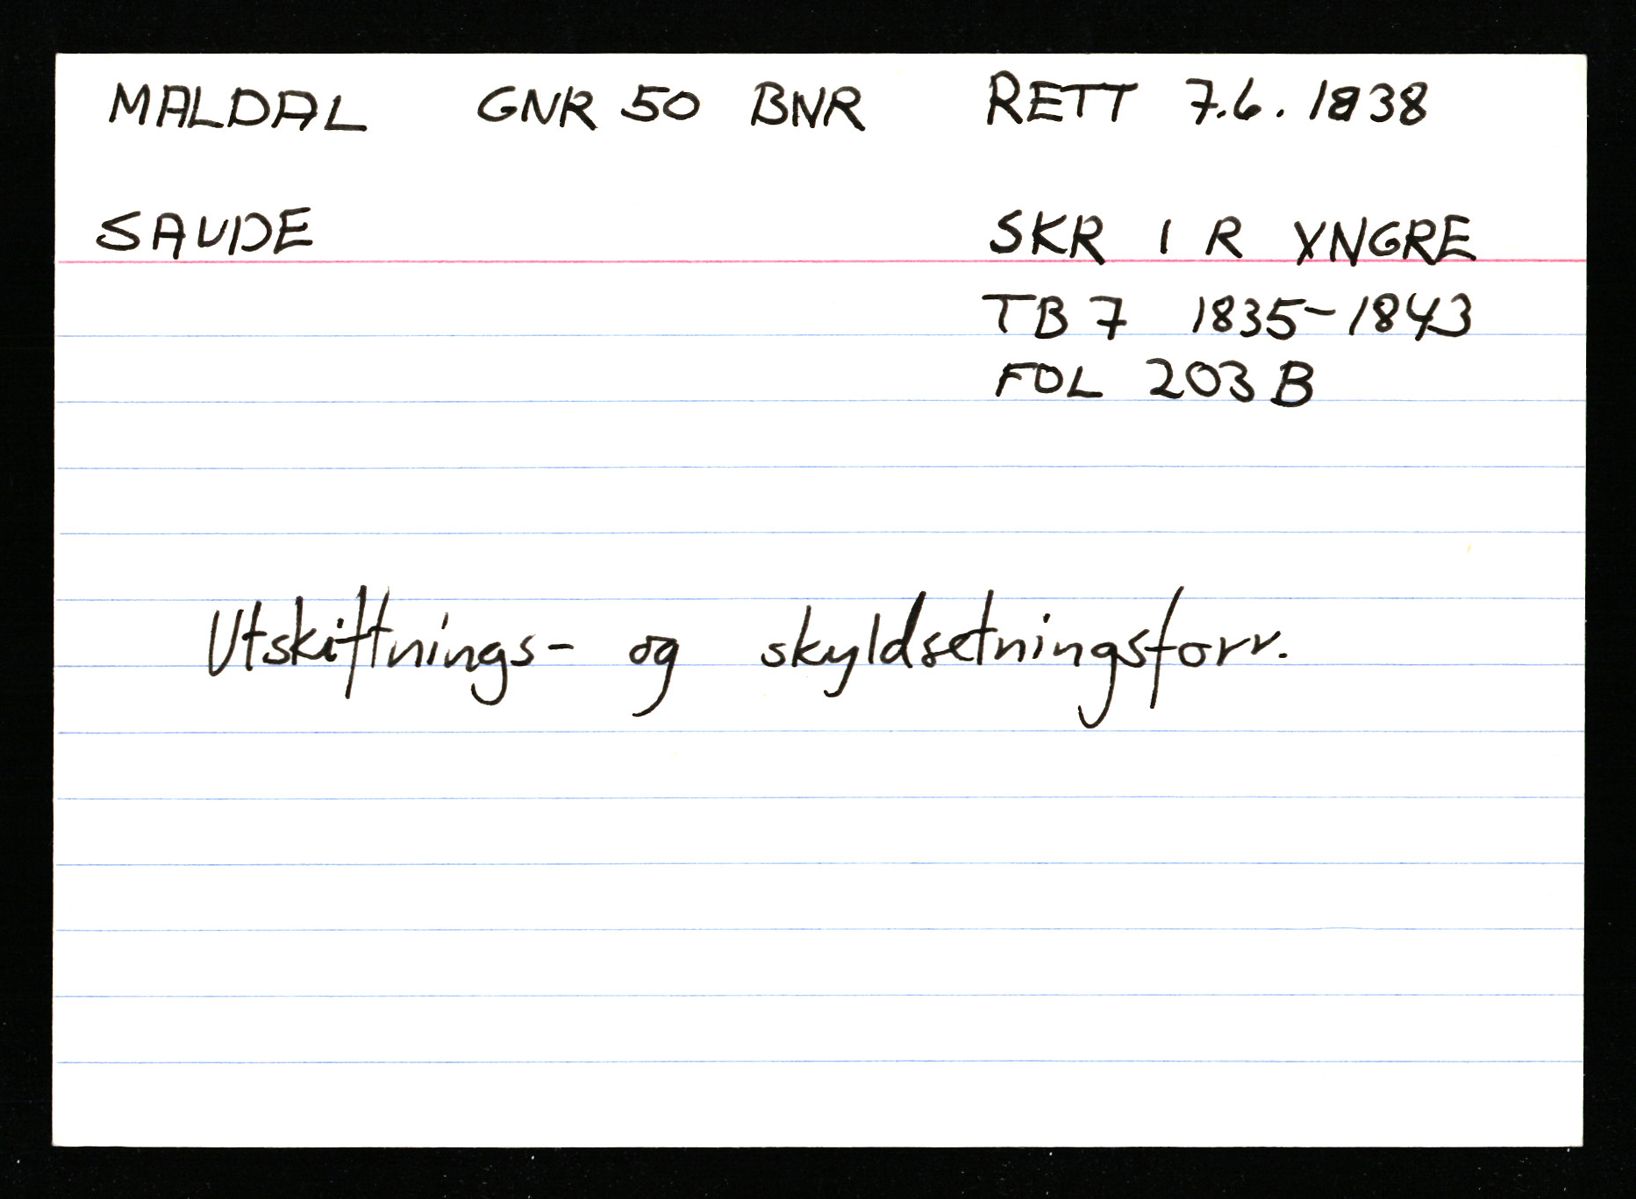 MALDAL GNR 50 BNR RETT 7.6. 1838
SAUDE SKR I R YNGRE
TB 7 1835-1843
FOL 203 B
Utskiftnings- og skyldsetningsforr.